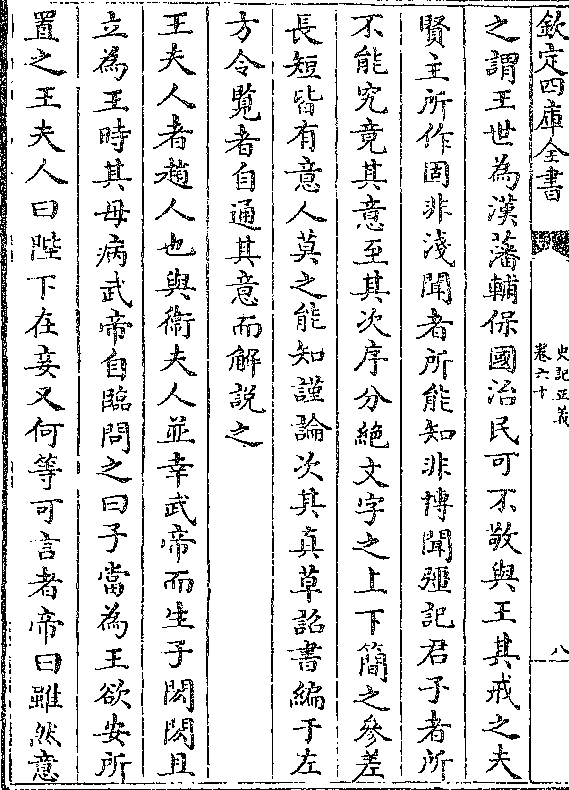 欽定四庫全書
史記正義
卷六十
八
之謂王世為漢藩輔保國治民可不敬與王其戒之夫
賢主所作固非淺聞者所能知非博聞彊記君子者所
不能究竟其意至其次序分絶文字之上下簡之參差
長短皆有意人莫之能知謹論次其真草詔書編于左
方令覽者自通其意而解說之
王夫人者趙人也與衛夫人並幸武帝而生子閎閎且
立為王時其母病武帝自臨問之曰子當為王欲安所
置之王夫人曰陛下在妾又何等可言者帝曰雖然意